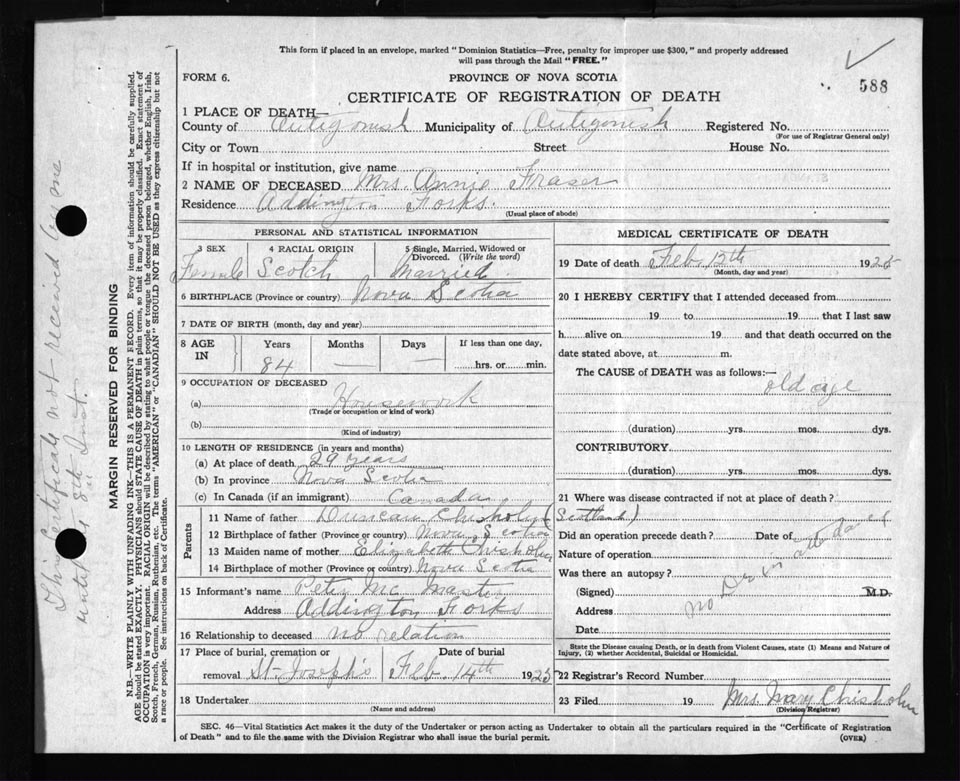 This form if placed in an envelope, marked "Dominion Statistics—Free, penalty for improper use $300," and properly addressed
will pass through the Mail "FREE."
FORM 6.
PROVINCE OF NOVA SCOTIA
588
CERTIFICATE OF REGISTRATION OF DEATH
1 PLACE OF DEATH
County of Antigonish Municipality of Antigonish Registered No.
(For use of Registrar General only)
City or Town Street House No.
If in hospital or institution, give name
2 NAME OF DECEASED Mrs. Annie Fraser
Residence Addington Forks.
(Usual place of abode)
PERSONAL AND STATISTICAL INFORMATION
3 SEX 4 RACIAL ORIGIN 5 Single, Married, Widowed or
Divorced. (Write the word)
Female Scotch Married
6 BIRTHPLACE (Province or country) Nova Scotia
7 DATE OF BIRTH (month, day and year)
8 AGE IN Years Months Days If less than one day,
84 — — hrs. or min.
9 OCCUPATION OF DECEASED
(a) Housework
(Trade or occupation or kind of work)
(b)
(Kind of industry)
10 LENGTH OF RESIDENCE (in years and months)
(a) At place of death 29 years
(b) In province Nova Scotia
(c) In Canada (if an immigrant) Canada
Parents
11 Name of father Duncan Chisholm (Scotland)
12 Birthplace of father (Province or country) Nova Scotia
13 Maiden name of mother Elizabeth Chisholm
14 Birthplace of mother (Province or country) Nova Scotia
15 Informant's name Peter Mc Master
Address Addington Forks
16 Relationship to deceased no relation
17 Place of burial, cremation or Date of burial
removal St. Joseph's Feb. 14th 1925
18 Undertaker
(Name and address)
MEDICAL CERTIFICATE OF DEATH
19 Date of death Feb. 12th 1925
(Month, day and year)
20 I HEREBY CERTIFY that I attended deceased from
19 to 19 that I last saw
h alive on 19 and that death occurred on the
date stated above, at m.
The CAUSE of DEATH was as follows:—
old age
(duration) yrs. mos. dys.
CONTRIBUTORY.
(duration) yrs. mos. dys.
21 Where was disease contracted if not at place of death?
Did an operation precede death? Date of
Nature of operation
Was there an autopsy?
no Dr. in attendance
(Signed) M.D.
Address
Date
State the Disease causing Death, or in death from Violent Causes, state (1) Means and Nature of
Injury, (2) whether Accidental, Suicidal or Homicidal.
22 Registrar's Record Number
23 Filed 19 Mrs. Mary Chisholm
(Division Registrar)
SEC. 46—Vital Statistics Act makes it the duty of the Undertaker or person acting as Undertaker to obtain all the particulars required in the "Certificate of Registration
of Death" and to file the same with the Division Registrar who shall issue the burial permit.
(OVER)
MARGIN RESERVED FOR BINDING
N.B.—WRITE PLAINLY WITH UNFADING INK—THIS IS A PERMANENT RECORD. Every item of information should be carefully supplied.
AGE should be stated EXACTLY. PHYSICIANS should STATE CAUSE OF DEATH in plain terms, so that it may be properly classified. Exact statement of
OCCUPATION is very important. RACIAL ORIGIN will be described by stating to what people or tongue the deceased person belonged, whether English, Irish,
Scotch, French, German, Russian, Ruthenian, etc. The terms "AMERICAN" or "CANADIAN" SHOULD NOT BE USED as they express citizenship but not
a race or people. See instructions on back of Certificate.
This Certificate not received by me
until 8th Inst.